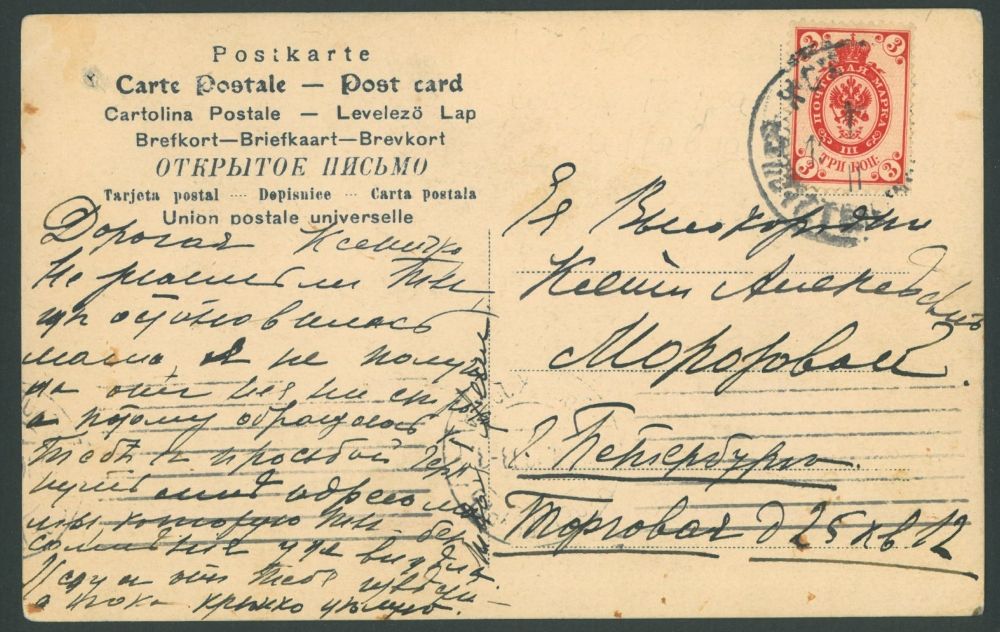 Postkarte
Carte Postale — Post card
Cartolina Postale — Levelező Lap
Brefkort—Briefkaart—Brevkort
ОТКРЫТОЕ ПИСЬМО
Tarjeta postal — Dopisnice — Carta postala
Union postale universelle
3 3
ПОЧТОВАЯ МАРКА
III
ТРИ КОП.
Дорогая
Не знаешь ли ты
где остановилась
мама я не получи
ла от нея ни
а потому обращаюсь
к тебе с просьбой
адрес ма
мы которую ты без
сомнения уже видела.
Жду от тебя
а пока крепко целую.
Ея Высокородию
Ксении
Морозовой.
г. Петербургъ.
Торговая д 25 кв 12